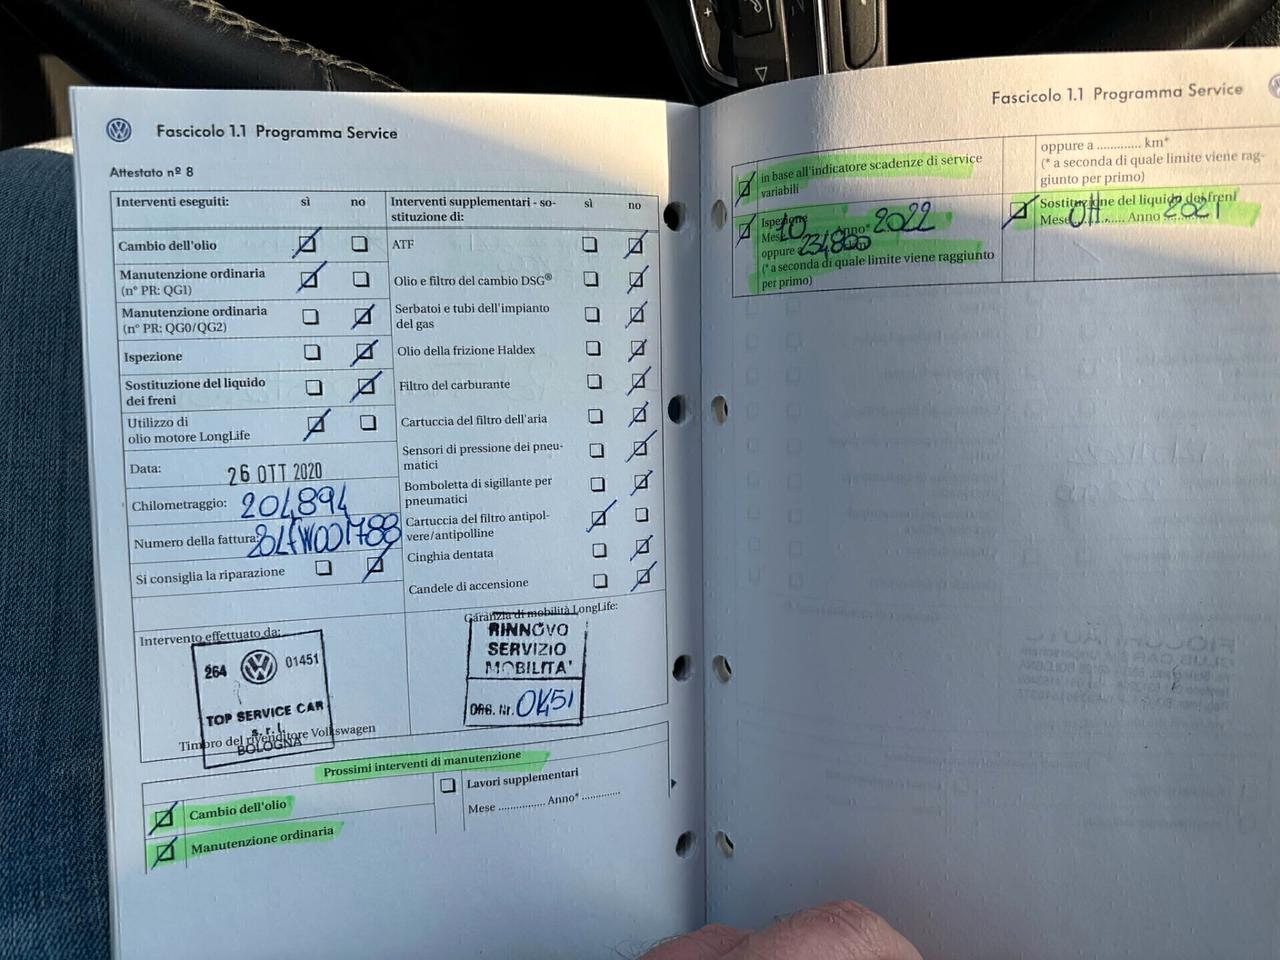 Fascicolo 1.1 Programma Service
Attestato nº 8
Interventi eseguiti: sì no
Cambio dell'olio
Manutenzione ordinaria
(nº PR: QG1)
Manutenzione ordinaria
(nº PR: QG0/QG2)
Ispezione
Sostituzione del liquido
dei freni
Utilizzo di
olio motore LongLife
Data: 26 OTT 2020
Chilometraggio: 204894
Numero della fattura:
Si consiglia la riparazione
Intervento effettuato da:
264 01451
TOP SERVICE CAR
s.r.l.
BOLOGNA
Timbro del rivenditore Volkswagen
Interventi supplementari - so-
stituzione di: sì no
ATF
Olio e filtro del cambio DSG®
Serbatoi e tubi dell'impianto
del gas
Olio della frizione Haldex
Filtro del carburante
Cartuccia del filtro dell'aria
Sensori di pressione dei pneu-
matici
Bomboletta di sigillante per
pneumatici
Cartuccia del filtro antipol-
vere/antipolline
Cinghia dentata
Candele di accensione
Garanzia di mobilità LongLife:
RINNOVO
SERVIZIO
MOBILITA'
ORG. Nr.
Prossimi interventi di manutenzione
Cambio dell'olio
Manutenzione ordinaria
Lavori supplementari
Mese ................ Anno* .............
Fascicolo 1.1 Programma Service
in base all'indicatore scadenze di service
variabili
Ispezione
Mese 10 Anno* 2022
oppure a 234800
(* a seconda di quale limite viene raggiunto
per primo)
oppure a ............. km*
(* a seconda di quale limite viene rag-
giunto per primo)
Sostituzione del liquido dei freni
Mese Ott Anno 2021